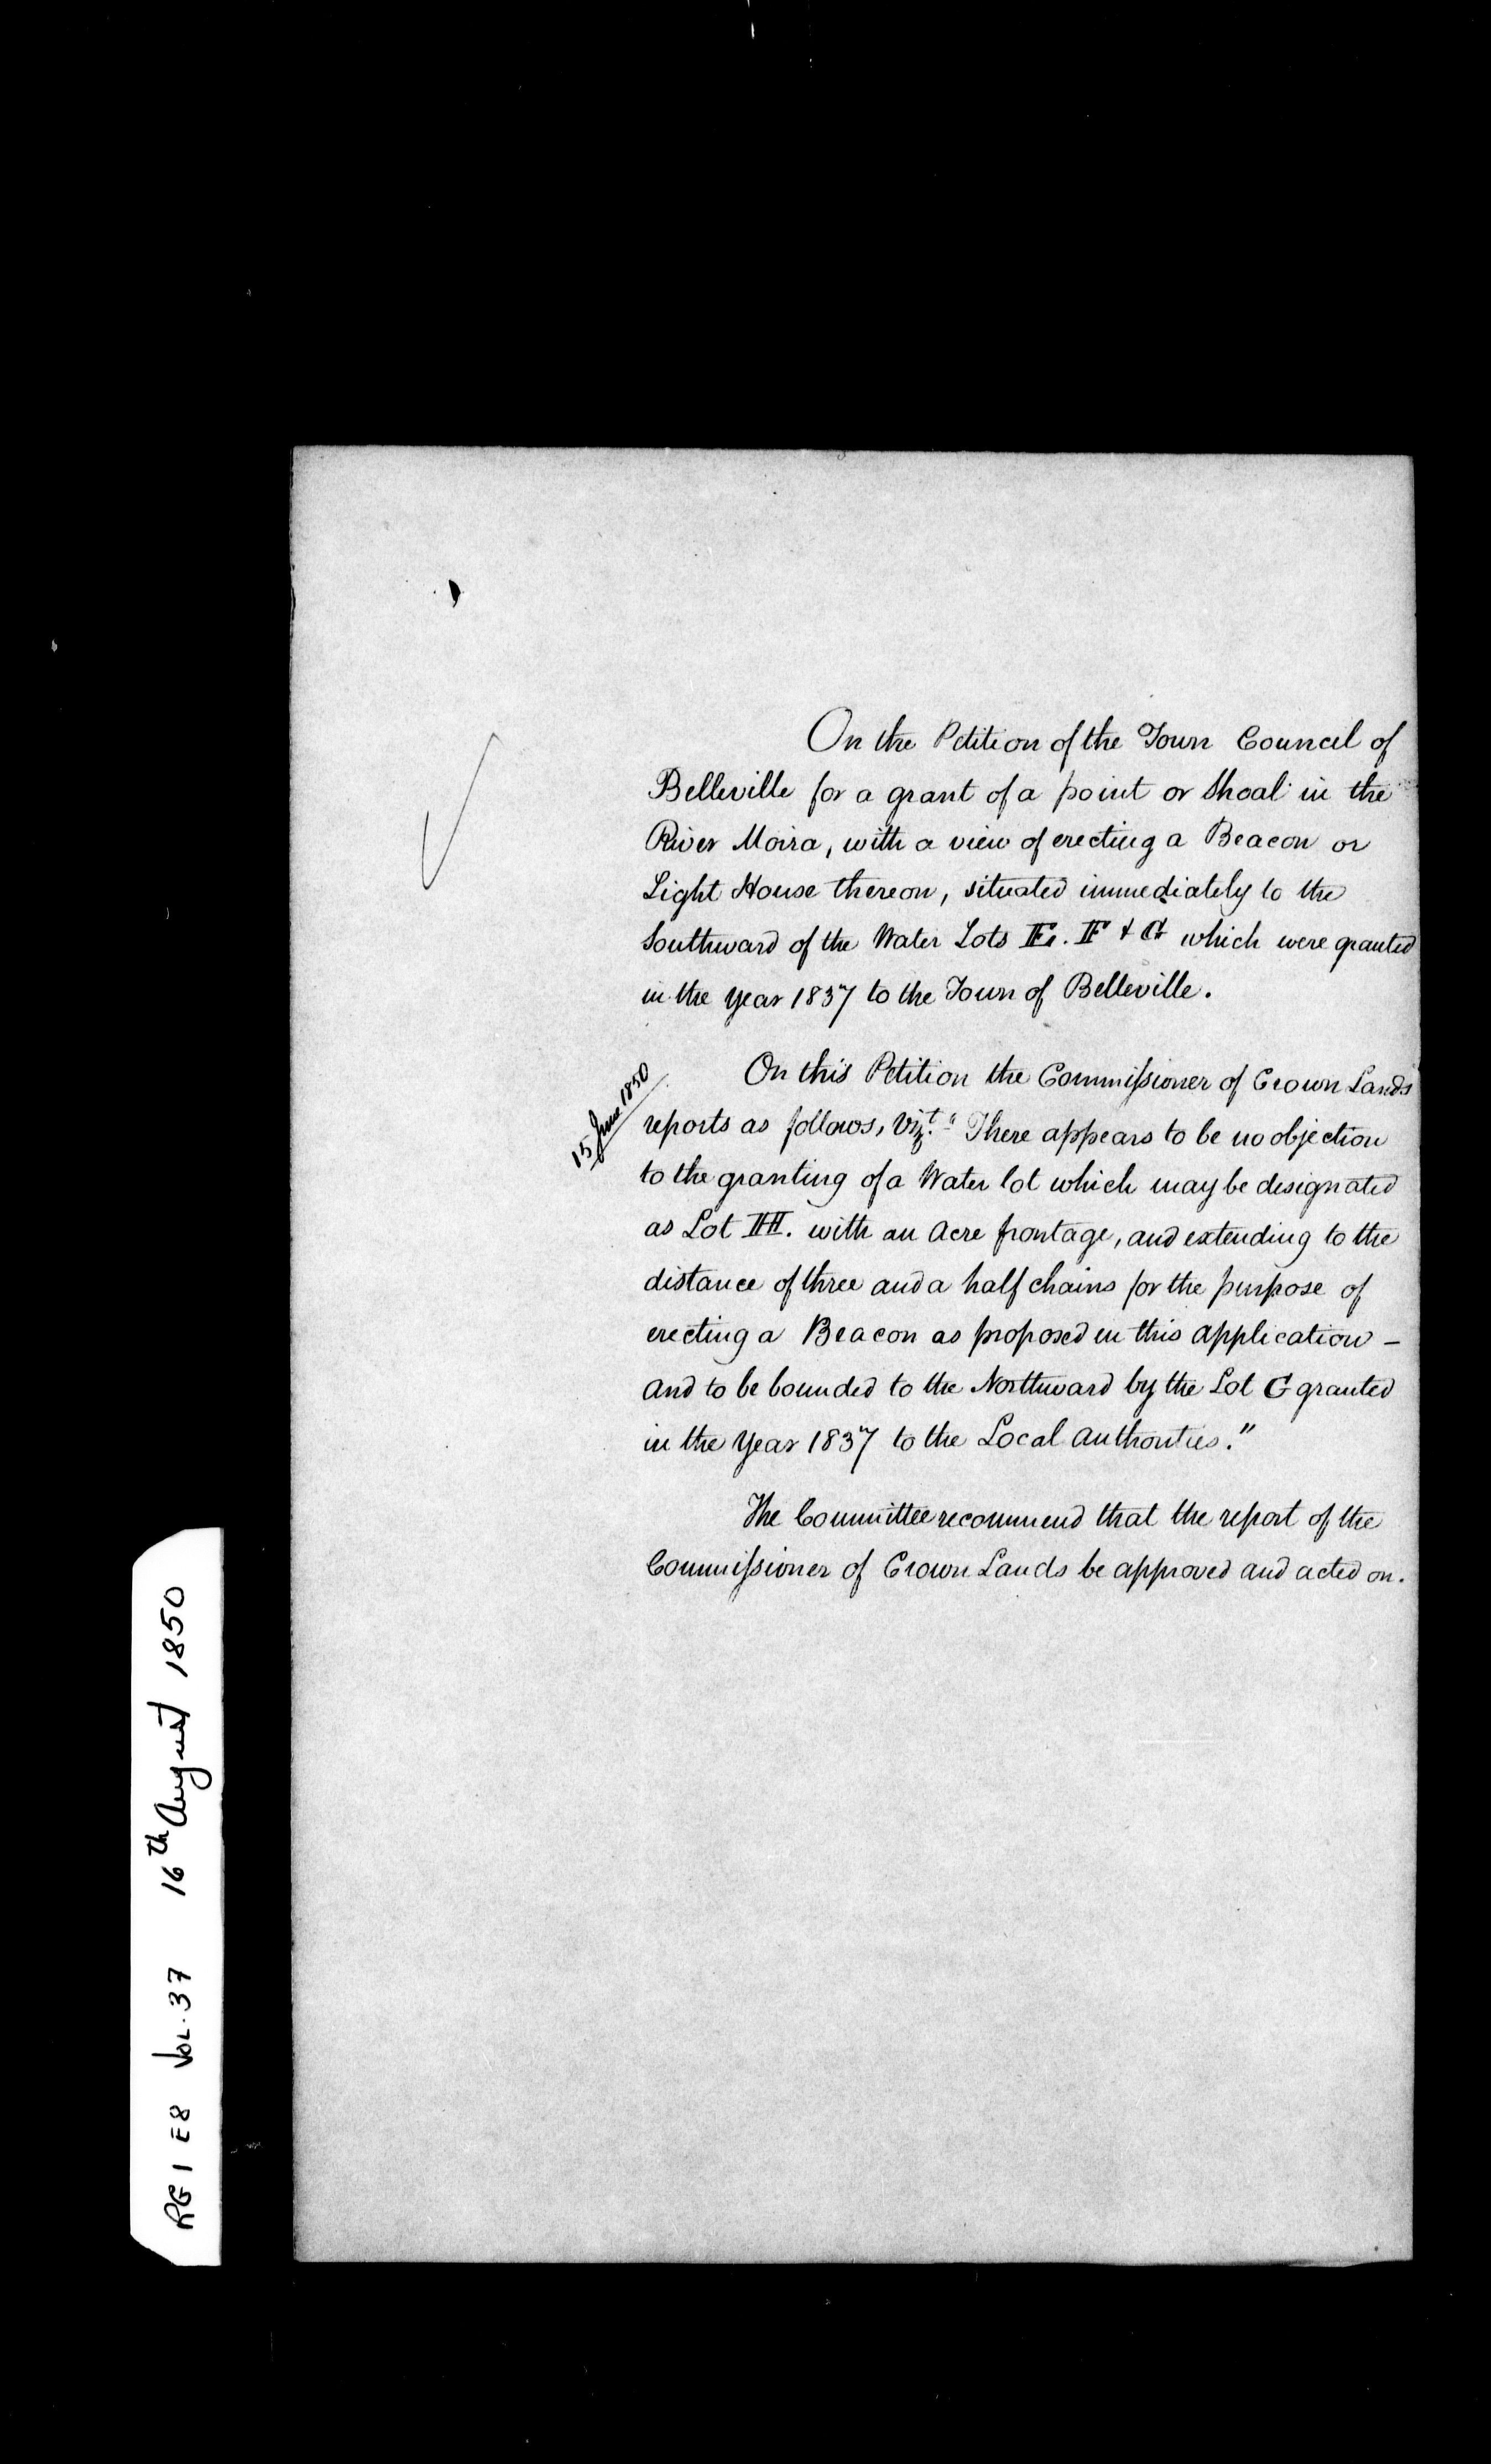 On the Petition of the Town Council of
Belleville for a grant of a point or Shoal in the
River Moira, with a view of erecting a Beacon or
Light House thereon, situated immediately to the
Southward of the Water Lots E. F & G which were granted
in the year 1837 to the Town of Belleville.
15 June 1850
On this Petition the Commissioner of Crown Lands
reports as follows, Vizt. "There appears to be no objection
to the granting of a Water lot which may be designated
as Lot H. with an Acre frontage, and extending to the
distance of three and a half chains for the purpose of
erecting a Beacon as proposed in this application —
and to be bounded to the Northward by the Lot G granted
in the year 1837 to the Local Authorities."
The Committee recommend that the report of the
Commissioner of Crown Lands be approved and acted on.
RG 1 E8 VOL. 37 16th August 1850